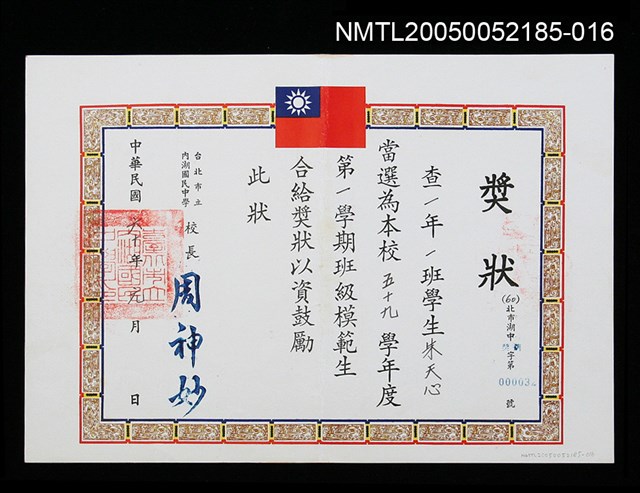 NMTL20050052185-016
獎狀
(60)北市湖中 字第00003 號
查一年1班學生朱天心
當選為本校五十九學年度
第一學期班級模範生
合給獎狀以資鼓勵
此狀
台北市立
內湖國民中學
校長
周神妙
中華民國六十年元月 日
NMTL20050052185-016